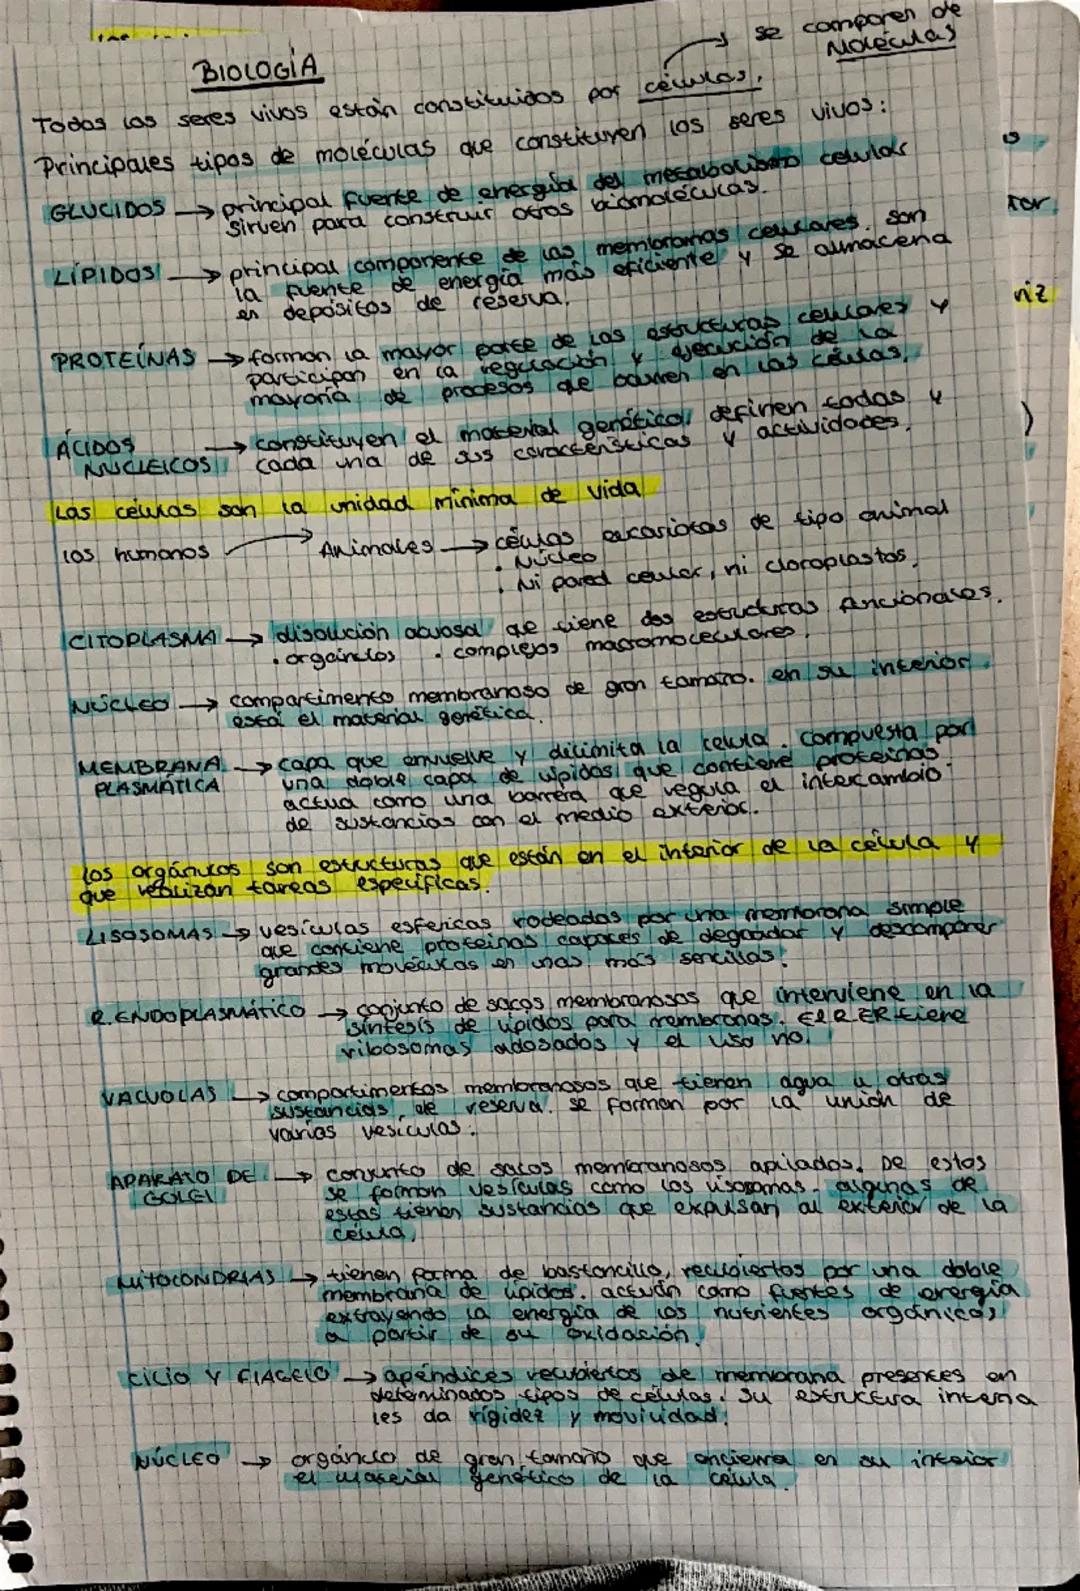 se componen de
Moléculas
BIOLOGÍA
Todos los seres vivos están constituidos por células.
Principales tipos de moléculas que constituyen los seres vivos:
GLUCIDOS → principal fuente de energía del metabolismo celular
sirven para construir otras biomoléculas.
LÍPIDOS → principal componente de las membranas celulares. son
la fuente de energía más eficiente y se almacena
en depósitos de reserva.
PROTEÍNAS → forman la mayor parte de las estructuras celulares y
participan en la regulación y ejecución de la
mayoría de procesos que ocurren en las células.
ÁCIDOS → constituyen el material genético, definen todas y
NUCLEICOS cada una de sus características y actividades.
Las células son la unidad mínima de vida
los humanos → Animales → células eucariotas de tipo animal
. Núcleo
. Ni pared celular, ni cloroplastos.
CITOPLASMA → disolución acuosa que tiene dos estructuras funcionales.
. orgánulos . complejos macromoleculares.
NÚCLEO → compartimento membranoso de gran tamaño. en su interior
está el material genético.
MEMBRANA → capa que envuelve y dilimita la celula. compuesta por
PLASMÁTICA una doble capa de lípidos que contiene proteínas.
actua como una barrera que regula el intercambio
de sustancias con el medio exterior.
los orgánulos son estructuras que están en el interior de la célula y
que realizan tareas específicas.
LISOSOMAS → vesículas esfericas rodeadas por una membrana simple
que contiene proteínas capaces de degradar y descomponer
grandes moléculas en unas más sencillas.
R. ENDOPLASMÁTICO → conjunto de sacos membranosos que interviene en la
síntesis de lípidos para membranas. El RER tiene
ribosomas adosados y el liso no.
VACUOLAS → compartimentos membranosos que tienen agua u otras
sustancias de reserva. se forman por la unión de
varias vesículas.
APARATO DE → conjunto de sacos membranosos apilados. De estos
GOLGI se forman vesículas como los lisosomas. algunas de
estas tienen sustancias que expulsan al exterior de la
célula.
MITOCONDRIAS → tienen forma de bastoncillo, recubiertos por una doble
membrana de lípidos. actúan como fuentes de energía
extrayendo la energía de los nutrientes orgánicos
a partir de su oxidación.
cilio y flagelo → apéndices recubiertos de membrana presentes en
determinados tipos de células. Su estructura interna
les da rigidez y movilidad.
NÚCLEO → orgánulo de gran tamaño que encierra en su interior
el material genético de la célula.